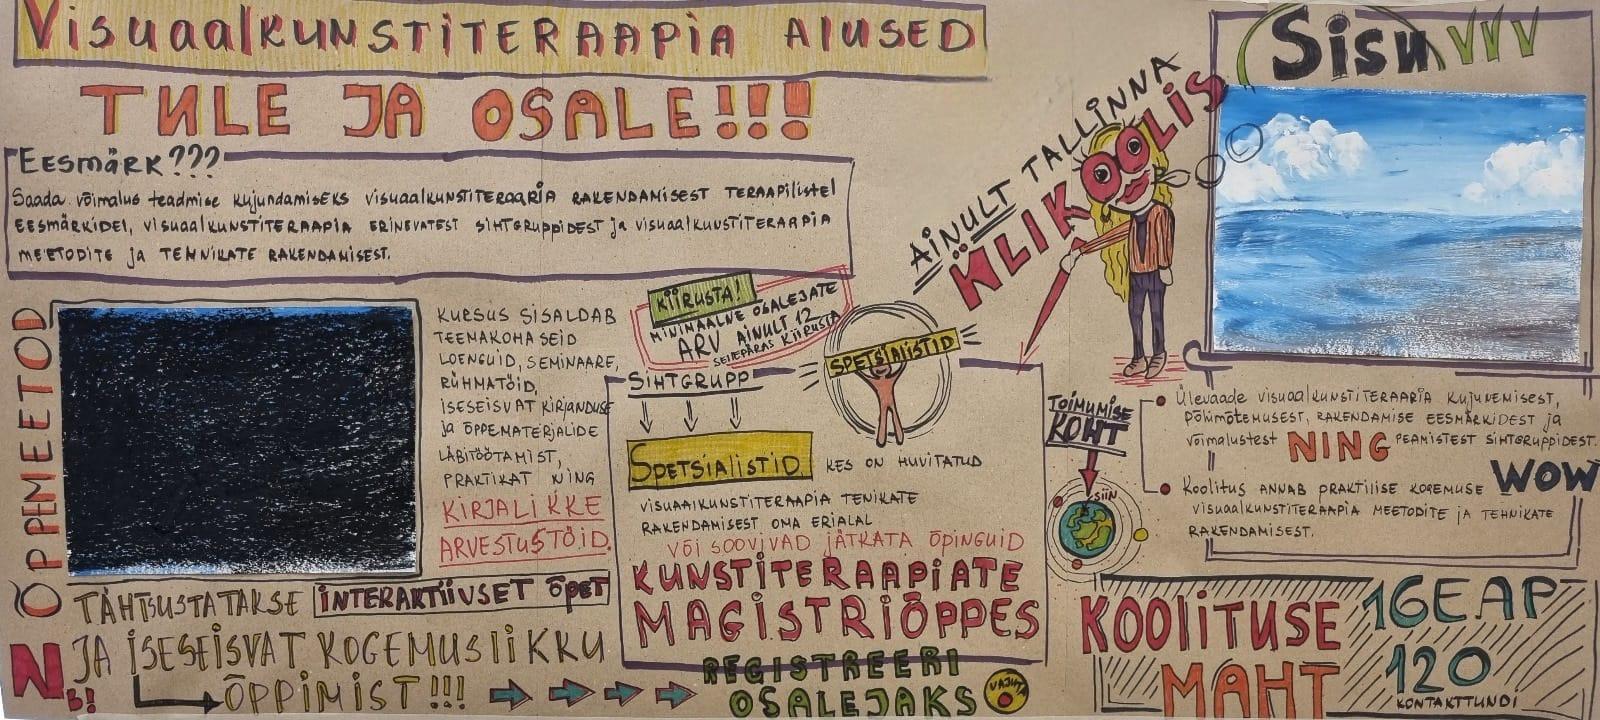 VisuaalKUNSTiTERAAPiA AlUSED
TULE JA OSALE!!!
EESMÄRK???
Saada võimalus teadmise kujundamiseks visuaalkunstiteraaPiA RAKENDAMISEST TERAAPilistel
EESMÄRKIDEl, VisuaalKUNSTiTERAAPiA ERiNEVATEST SiHTGRUPPiDEST ja visuaalKUNSTiTERAAPiA
MEETODITE ja TEHNIKATE RAKENDAMISEST.
ÕPPEMEETOD
KURSUS SiSALDAB
TEEMAKOHASEID
LOENGUID, SEMINAARE,
RÜHMATÖID,
iSESEiSVAT KiRJANDUSE
ja ÕPPEMATERJALiDE
LÄBiTÖÖTAMIST,
PRAKTiKAT NiNG
KiRJALiKKE
ARVESTUSTÖiD.
N
B!
TÄHTSUSTATAKSE iNTERAKTiiVSET ÕPET
JA iSESEiSVAT KOGEMUSliKKU
ÕPPiMiST!!!
KiiRUSTA!
MiNiMAALNE OSALEJATE
ARV AiNULT 12
SELLEPÄRAS KiiRUSTA
SiHTGRUPP
SPETSiALiSTiD
SPETSiALiSTiD KES ON HUViTATUD
VISUAAlKUNSTiTERAAPiA TENiKATE
RAKENDAMiSEST OMA ERiALAL
VÕi SOOViVAD JÄTKATA ÕPiNGUiD
KUNSTiTERAAPiATE
MAGiSTRiÕPPES
REGiSTREERi
OSALEJAKS
VAJUTA
AiNULT TALLiNNA
ÜLiKOOLiS
TOiMUMiSE
KOHT
SiiN
Sisu
Ülevaade VisuaalKUNSTiTERAAPiA KUJUNEMiSEST,
PÕHiMÕTEMUSEST, RAKENDAMiSE EESMÄRKiDEST ja
VÕiMALUSTEST NiNG PEAMiSTEST SiHTGRUPPiDEST.
WOW
KOOLiTUS ANNAB PRAKTiliSE KOGEMUSE
ViSUAALKUNSTiTERAAPiA MEETODiTE ja TEHNiKATE
RAKENDAMiSEST.
KOOLiTUSE
MAHT
16EAP
120
KONTAKTTUNDi